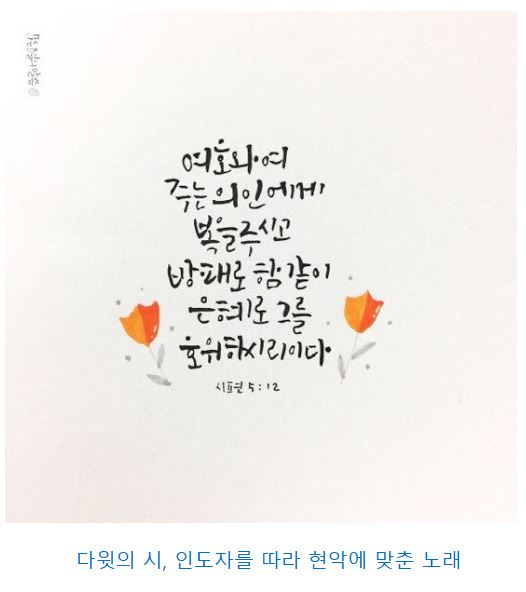 여호와여
주는 의인에게
복을 주시고
방패로 함 같이
은혜로 그를
호위하시리이다.
시편 5:12
다윗의 시, 인도자를 따라 현악에 맞춘 노래